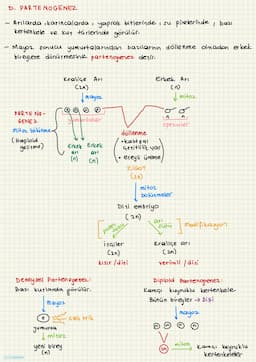 D. PARTENOGENEZ
- Arılarda, karıncalarda, yaprak bitlerinde, su pirelerinde, bazı
kertenkele ve kuş türlerinde görülür.
- Mayoz sonucu yumurtalarından bazılarının döllenme olmadan erkek
bireylere dönüşmesine partenogenez denir.
Kraliçe Arı
(2n)
Erkek Arı
(n)
mayoz
mitoz
PARTENO-
GENEZ
n n n n
yumurtalar
n n
spermler
mitoz bölünme
(Haploid
gelişme)
Erkek Arı
(n)
Erkek Arı
(n)
döllenme
+ kalıtsal
çeşitlilik var
+ eşeyli üreme
ZİGOT
(2n)
mitoz
bölünmeler
Dişi embriyo
(2n)
arı sütü
modifikasyon
İşçiler
(2n)
Kraliçe arı
(2n)
kısır / dişi
verimli / dişi
Deneysel Partenogenez:
Bazı
görülür.
mayoz
n
yumurta
mitoz
yeni birey
(n)
Diploid Partenogenez:
Kamçı kuyruklu kertenkele.
Bütün bireyler → Dişi
mayoz
mitoz
Kamçı kuyruklu
kertenkeleler